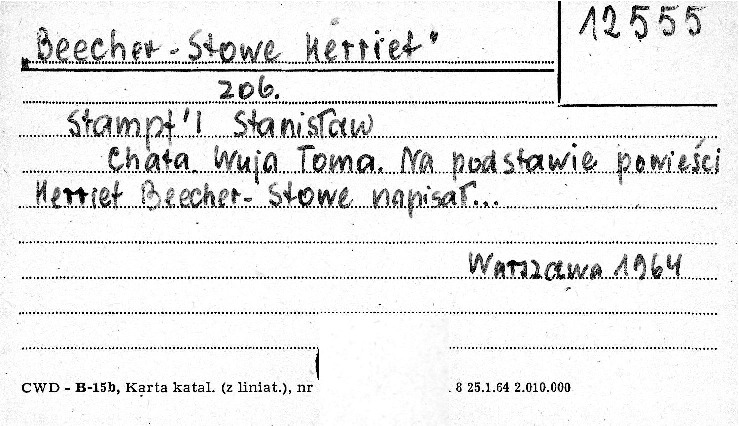 12555
„Beecher-Stowe Herriet"
zob.
Stampf'l Stanisław
Chata Wuja Toma. Na podstawie powieści
Herriet Beecher-Stowe napisał...
Warszawa 1964
CWD - B-15b, Karta katal. (z liniat.), nr
8 25.1.64 2.010.000